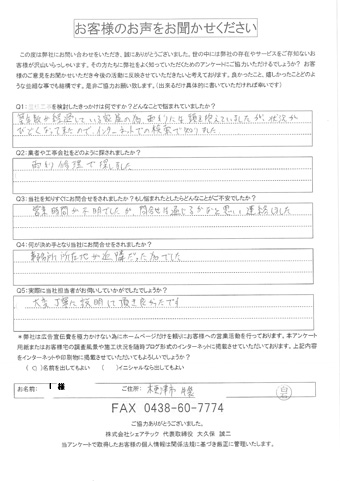 お客様のお声をお聞かせください
この度は弊社にお問い合わせをいただき、誠にありがとうございました。世の中には弊社の存在やサービスをご存知ないお
客様が沢山いらっしゃいます。その方たちに弊社をよく知っていただくためのアンケートにご協力いただけるでしょうか？ お
客様のご意見をお聞かせいただき今後の活動に反映させていただきたいと考えております。良かったこと、嬉しかったことどのよ
うな些細な事でも結構です。是非ご協力お願い致します。（出来るだけ具体的に書いていただければ幸いです）
を検討したきっかけは何ですか？どんなことで悩まれていましたか？
している家屋の為、雨もりに
ひどくなってきたので、インターネットでの検索で知りました
Q2：業者や工事会社をどのように探されましたか？
雨もり修理で探しました
Q3：当社を知りすぐにお問合せをされましたか？もし悩まれたとしたらどんなことがご不安でしたか？
営業時間が不明でしたが、問合せは通じるかなと思い連絡しました
Q4：何が決め手となり当社にお問合せをされましたか？
事務所の所在地が近隣だった為でした
Q5：実際に当社担当者がお伺いしていかがでしたでしょうか？
大変丁寧に説明して頂き良かったです
＊弊社は広告宣伝費を極力かけない為にホームページだけを頼りにお客様への営業活動を行っております。本アンケート
用紙またはお客様宅の調査風景や施工状況を随時ブログ形式のインターネットに掲載させていただいております。上記内容
をインターネットや印刷物に掲載させていただいてもよろしいでしょうか？
（ ○ ）名前を出してもよい （ ）イニシャルなら出してもよい
お名前： I 様 ご住所： 木更津市
FAX 0438-60-7774
ご協力ありがとうございました。
株式会社シェアテック 代表取締役 大久保 誠二
当アンケートで取得したお客様の個人情報は関係法規に基づき厳正に管理いたします。